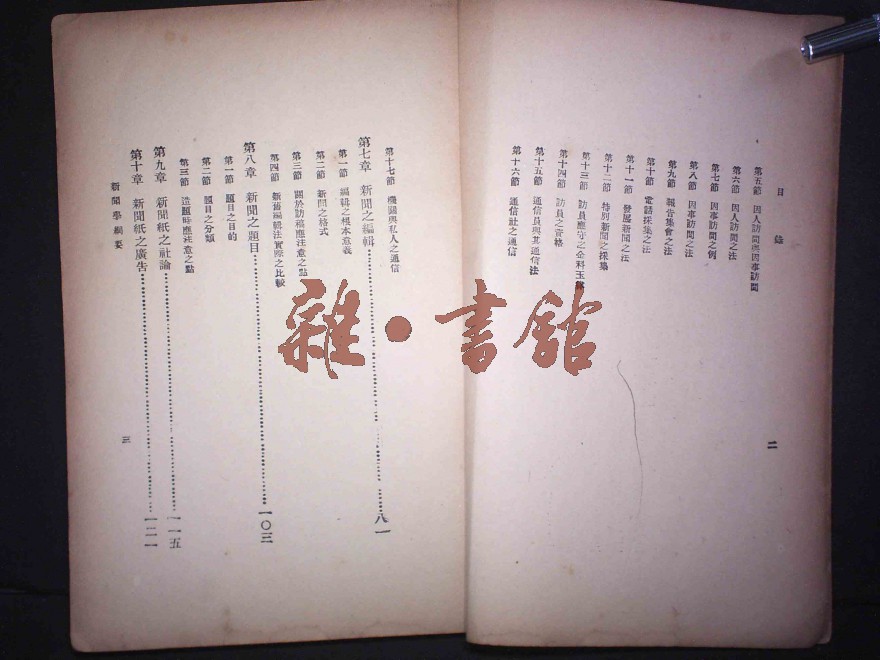 目錄
第五節 因人訪問與因事訪問
第六節 因人訪問之法
第七節 因事訪問之例
第八節 因事訪問之法
第九節 報告集會之法
第十節 電話採集之法
第十一節 發展新聞之法
第十二節 特別新聞之採集
第十三節 訪員應守之金科玉
第十四節 訪員之資格
第十五節 通信員與其通信法
第十六節 通信社之通信
二
第十七節 機關與私人之通信
第七章 新聞之編輯 八一
第一節 編輯之根本意義
第二節 新聞之格式
第三節 關於訪稿應注意之點
第四節 新舊編輯法實際之比較
第八章 新聞之題目 一〇三
第一節 題目之目的
第二節 題目之分類
第三節 造題時應注意之點
第九章 新聞紙之社論 一一五
第十章 新聞紙之廣告 一二一
新聞學綱要
三
雜·書館